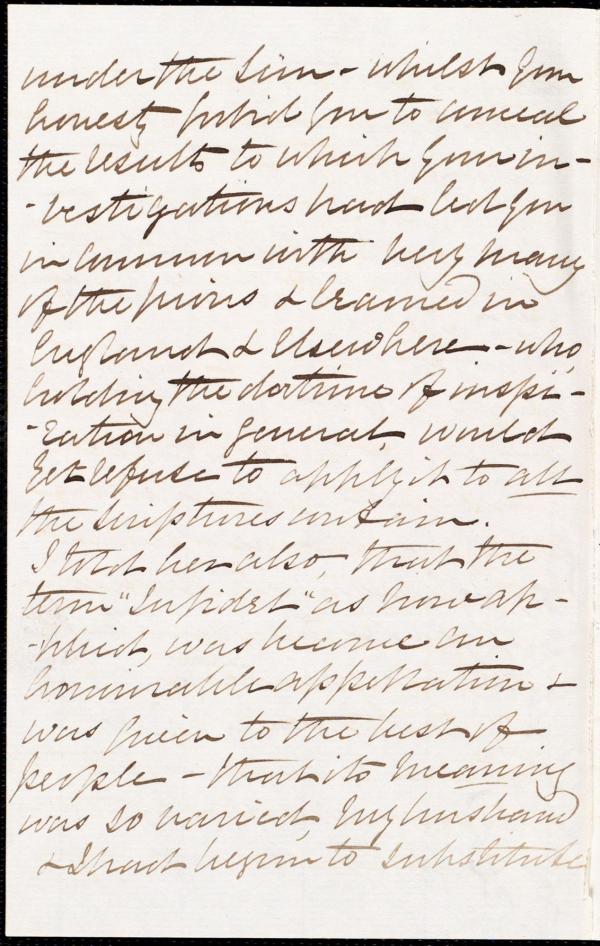 under the Sun - whilst your
honesty forbid you to conceal
the results to which your in-
-vestigations had led you
in common with very many
of the pious & learned in
England & Elsewhere - who,
holding the doctrine of inspi-
-ration in general, would
yet refuse to apply it to all
the Scriptures contain.
I told her also, that the
term "Infidel" as now ap-
-plied, was become an
honourable appellation &
was given to the best of
people - that its meaning
was so varied, my husband
& I had begun to substitute